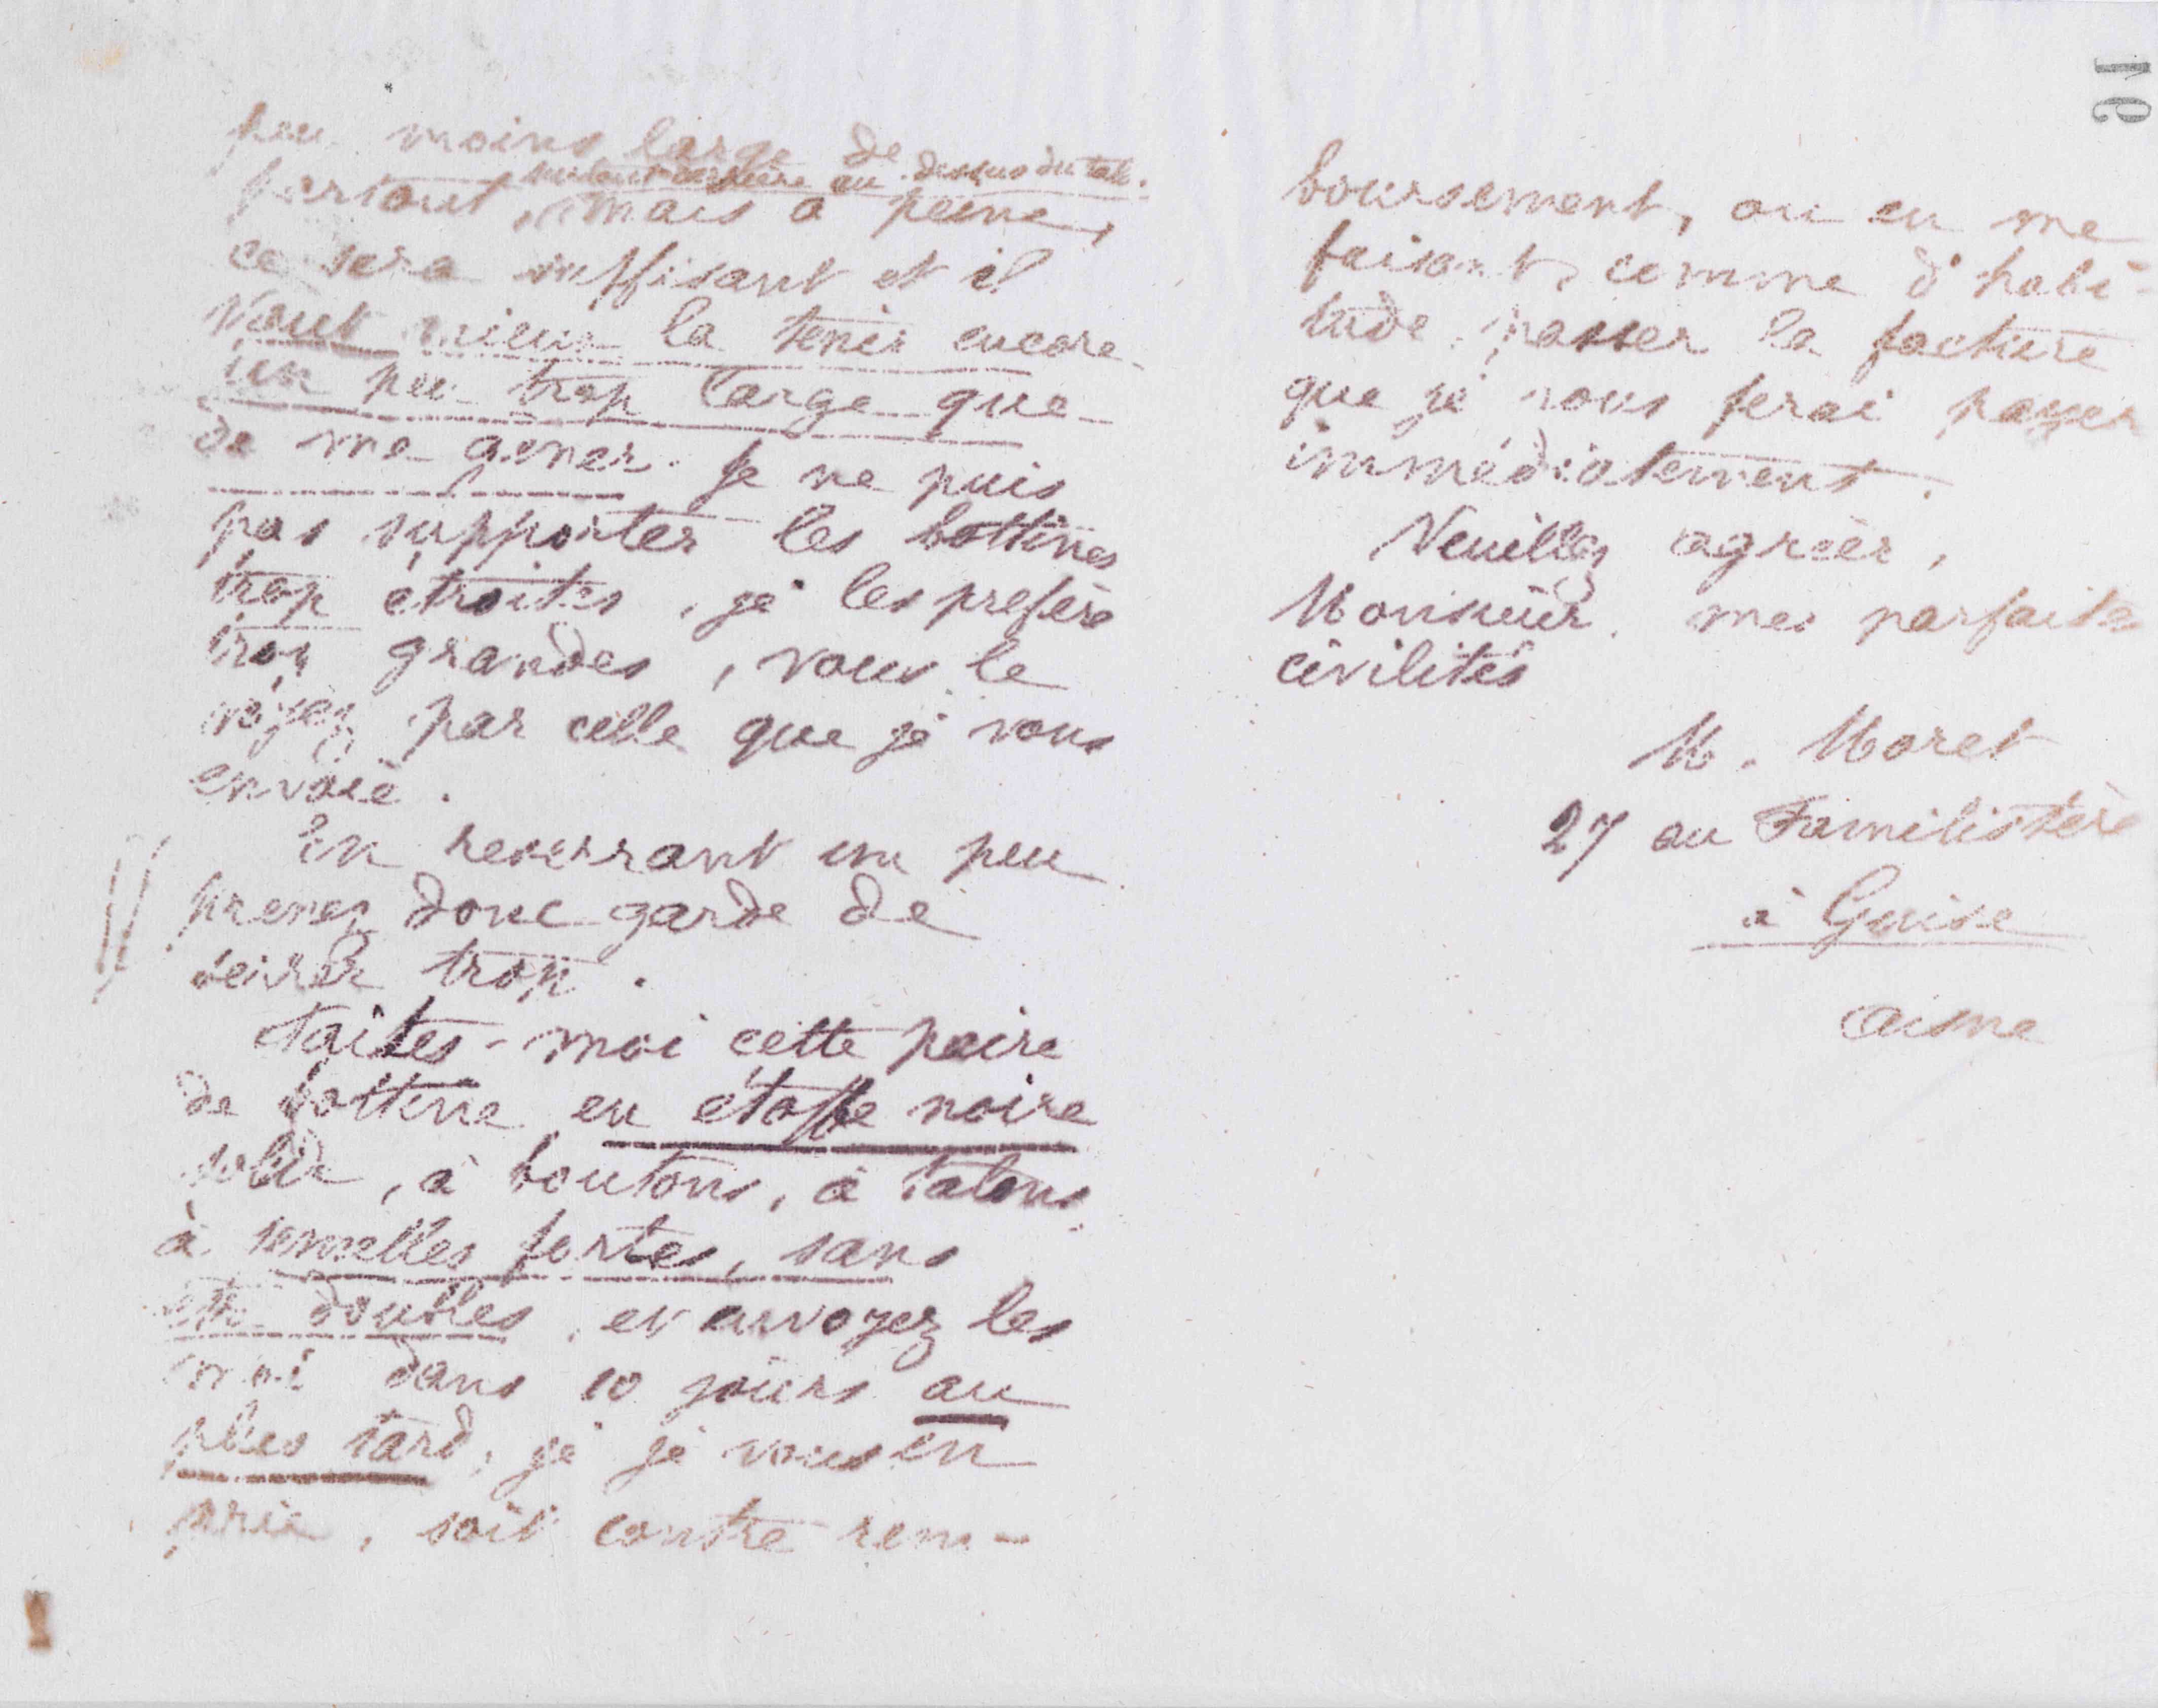 peu moins large de
surtout derrière au-dessus du talon.
partout, mais à peine,
ce sera suffisant et il
Vaut mieux la tenir encore
un peu trop large que
de me gêner. Je ne puis
pas supporter les bottines
trop étroites, je les préfère
trop grandes, vous le
voyez par celle que je vous
envoie.
En resserrant un peu
prenez donc garde de
serrer trop.
Faites-moi cette paire
de bottine en étoffe noire
solide, à boutons, à talons
à semelles fortes, sans
être doubles, et envoyez les
moi dans 10 jours au
plus tard, je je vous en
prie, soit contre rem-
boursement, ou en me
faisant, comme d'habi-
tude, passer la facture
que je vous ferai payer
immédiatement.
Veuillez agréer,
Monsieur, mes parfaites
civilités
M. Moret
27 au Familistère
à Guise
Aisne